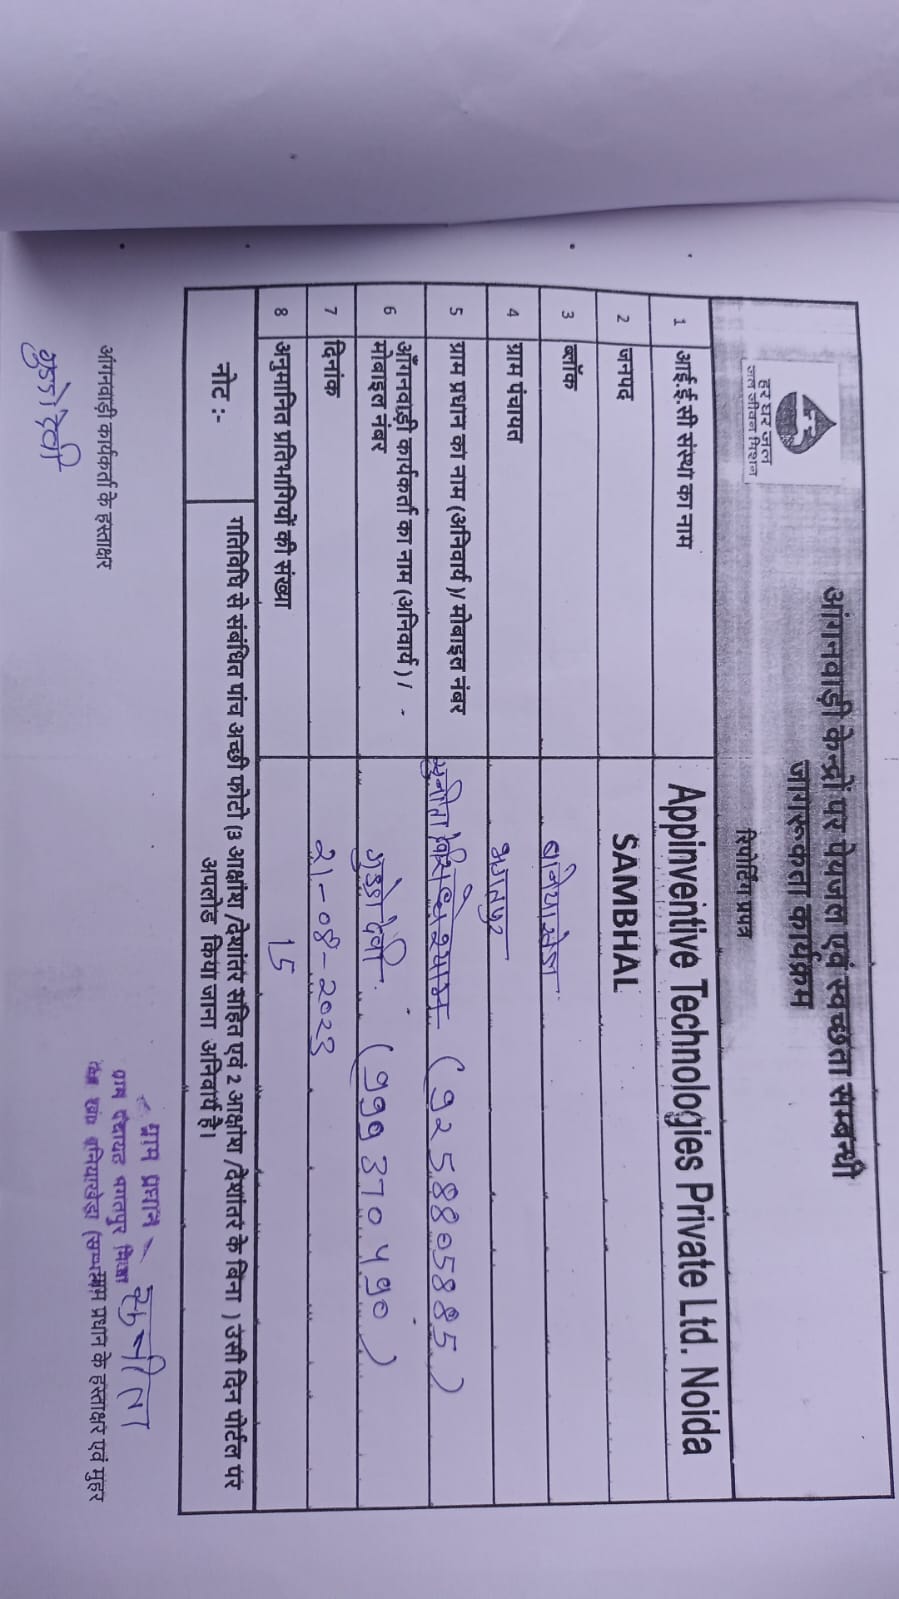 आंगनवाड़ी केन्द्रों पर पेयजल एवं स्वच्छता सम्बन्धी
जागरूकता कार्यक्रम
रिपोर्टिंग प्रपत्र
हर घर जल
जल जीवन मिशन
1 आई.ई.सी संस्था का नाम Appinventive Technologies Private Ltd. Noida
2 जनपद SAMBHAL
3 ब्लॉक बनियाखेडा
4 ग्राम पंचायत भगतपुर
5 ग्राम प्रधान का नाम (अनिवार्य )/ मोबाइल नंबर सुनीता (9258805885)
6 आँगनवाड़ी कार्यकर्ता का नाम (अनिवार्य ) / मोबाइल नंबर गुड्डो देवी (9993704990)
7 दिनांक 21-08-2023
8 अनुमानित प्रतिभागियों की संख्या 15
नोट :- गतिविधि से संबंधित पांच अच्छी फोटो (3 आक्षांष /देशांतर सहित एवं 2 आक्षांष /देशांतर के बिना ) उसी दिन पोर्टल पर
अपलोड किया जाना अनिवार्य है।
ग्राम प्रधान
ग्राम पंचायत भगतपुर
सुनीता
बनियाखेड़ा
आंगनवाड़ी कार्यकर्ता के हस्ताक्षर
ग्राम प्रधान के हस्ताक्षर एवं मुहर
गुड्डो देवी